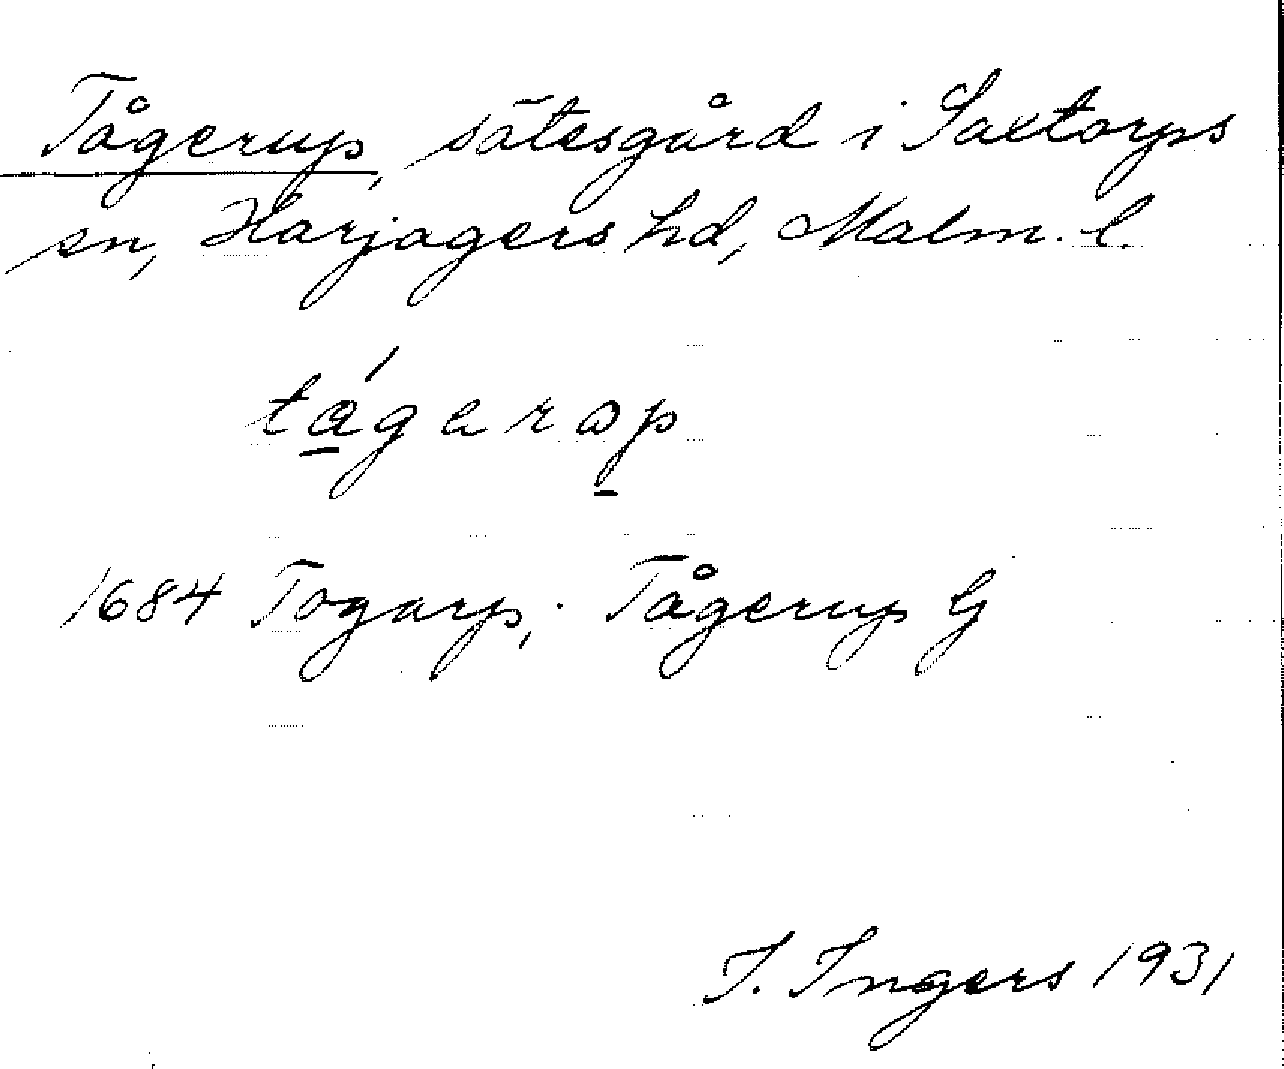 Tågerup, sätesgård i Saxtorps
sn, Harjagers hd, Malm. l.
tågarəp
1684 Togarp; Tågerup G
I. Ingers 1931